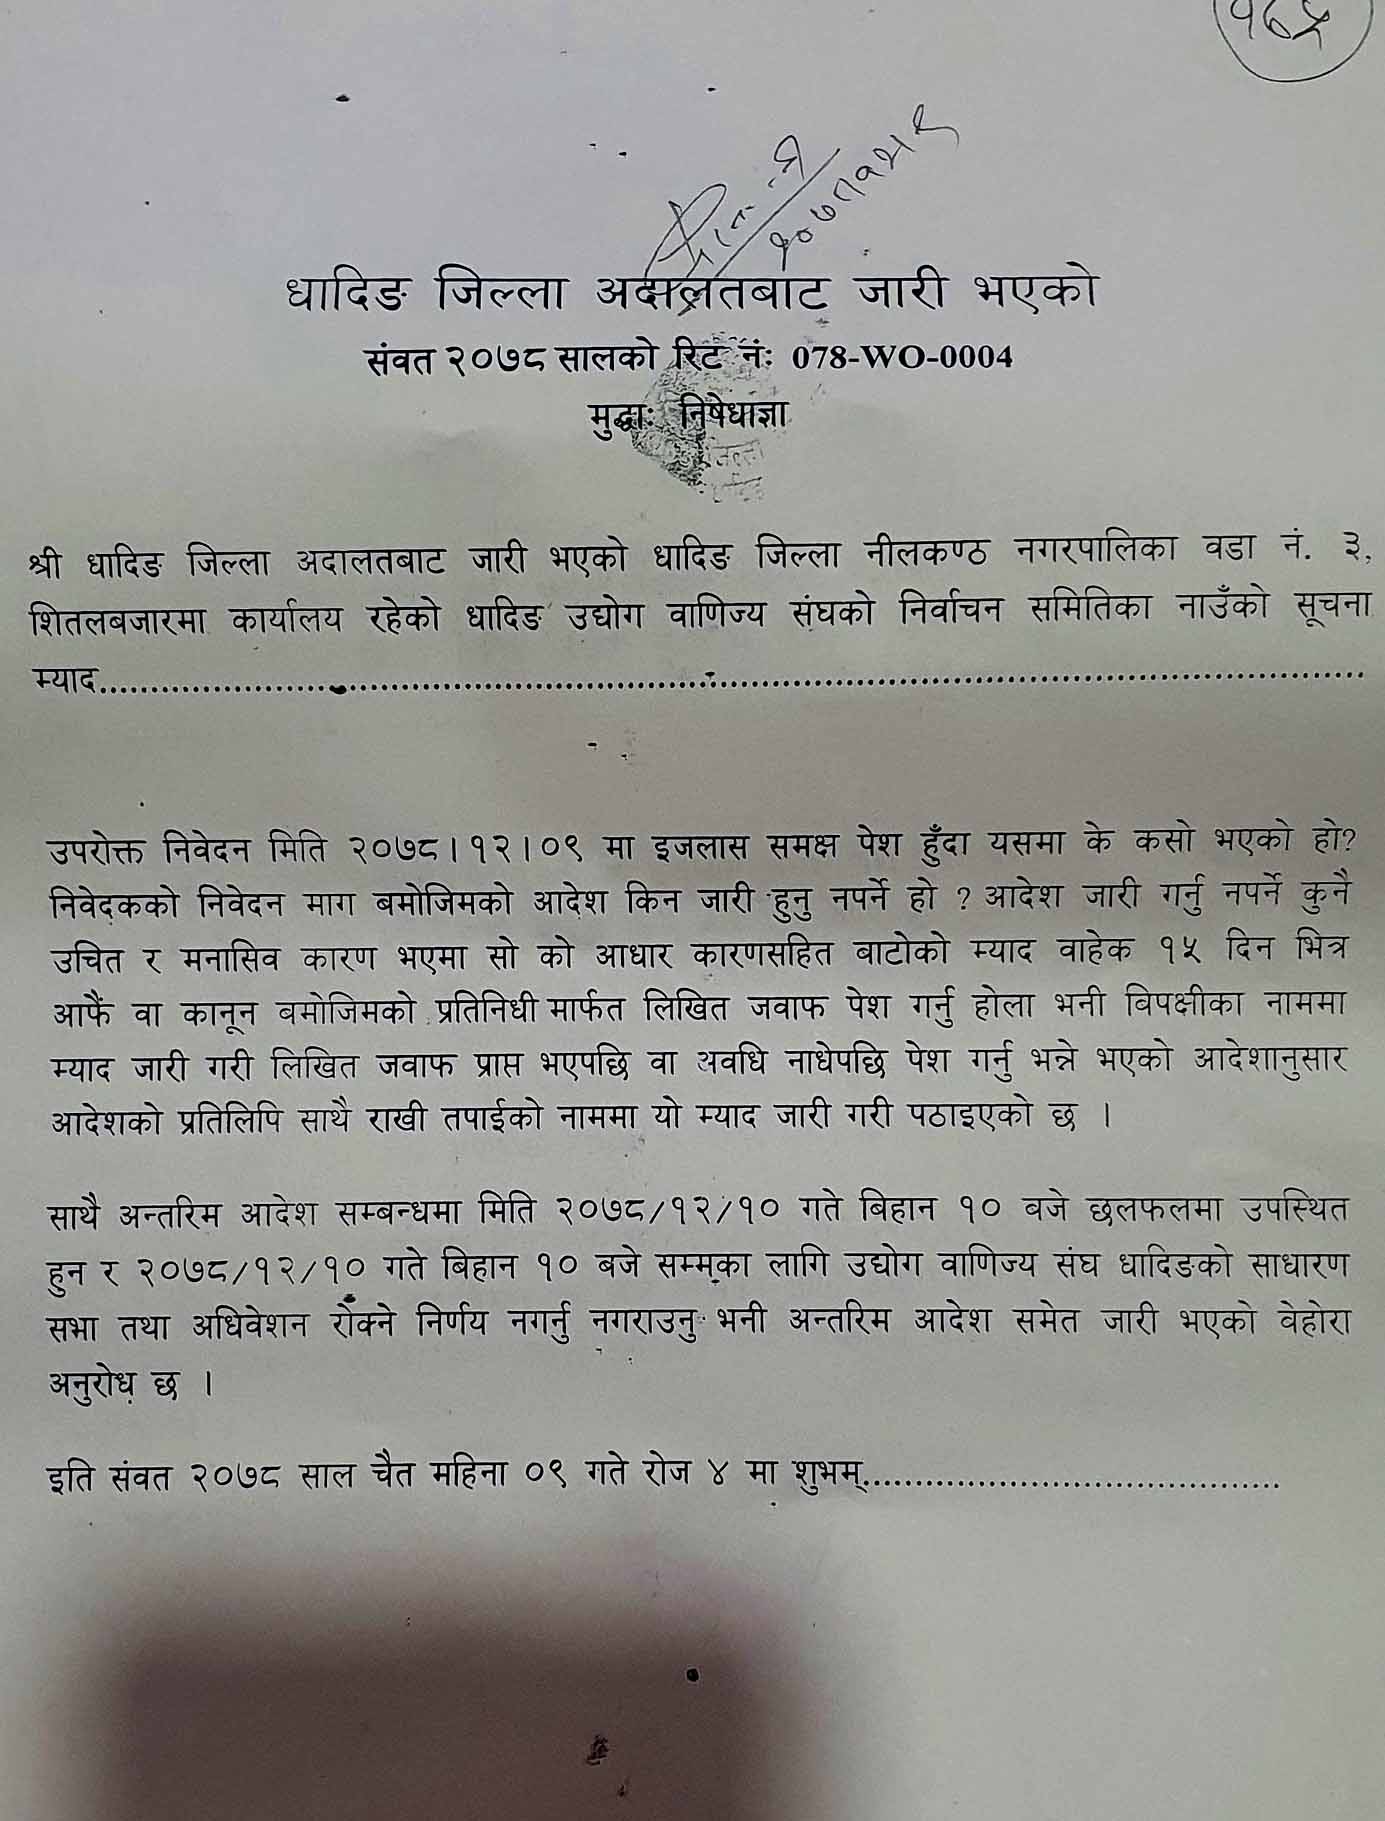 १६५
२०७८।१२।९
धादिङ जिल्ला अदालतबाट जारी भएको
संवत २०७८ सालको रिट नंः 078-WO-0004
मुद्धाः निषेधाज्ञा
श्री धादिङ जिल्ला अदालतबाट जारी भएको धादिङ जिल्ला नीलकण्ठ नगरपालिका वडा नं. ३,
शितलबजारमा कार्यालय रहेको धादिङ उद्योग वाणिज्य संघको निर्वाचन समितिका नाउँको सूचना
म्याद..........................................................................................................
उपरोक्त निवेदन मिति २०७८।१२।०९ मा इजलास समक्ष पेश हुँदा यसमा के कसो भएको हो?
निवेदकको निवेदन माग बमोजिमको आदेश किन जारी हुनु नपर्ने हो ? आदेश जारी गर्नु नपर्ने कुनै
उचित र मनासिव कारण भएमा सो को आधार कारणसहित बाटोको म्याद वाहेक १५ दिन भित्र
आफैं वा कानून बमोजिमको प्रतिनिधी मार्फत लिखित जवाफ पेश गर्नु होला भनी विपक्षीका नाममा
म्याद जारी गरी लिखित जवाफ प्राप्त भएपछि वा अवधि नाधेपछि पेश गर्नु भन्ने भएको आदेशानुसार
आदेशको प्रतिलिपि साथै राखी तपाईको नाममा यो म्याद जारी गरी पठाइएको छ ।
साथै अन्तरिम आदेश सम्बन्धमा मिति २०७८/१२/१० गते बिहान १० बजे छलफलमा उपस्थित
हुन र २०७८/१२/१० गते बिहान १० बजे सम्मका लागि उद्योग वाणिज्य संघ धादिङको साधारण
सभा तथा अधिवेशन रोक्ने निर्णय नगर्नु नगराउनु भनी अन्तरिम आदेश समेत जारी भएको वेहोरा
अनुरोध छ ।
इति संवत २०७८ साल चैत महिना ०९ गते रोज ४ मा शुभम्........................................